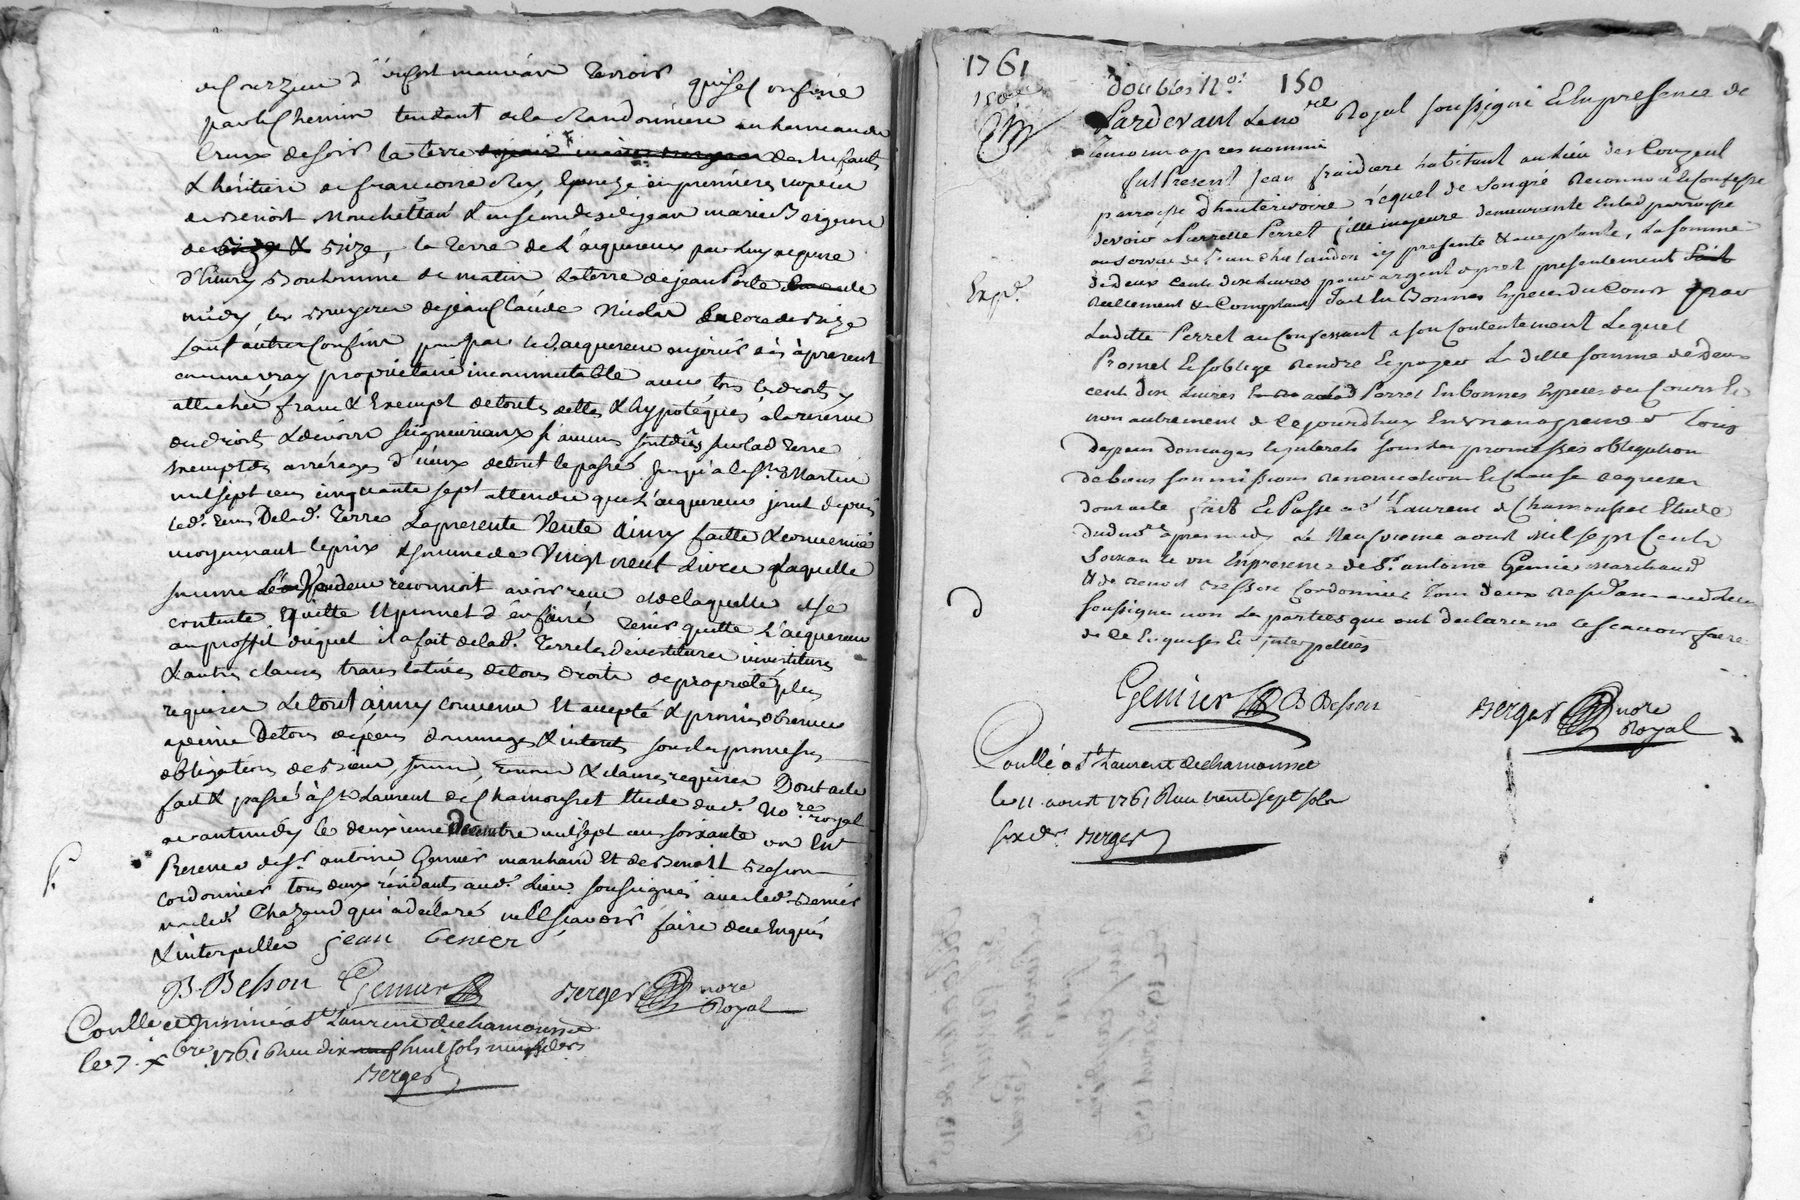 par le Chemin tendant de la Randonniere au hameau de
Crux de soir la terre des Enfants
& héritiers de francoise Rey,
de Benoit Mouchettant & en secondes de jean marie
de Bize, la terre de L'acquereur par luy acquise
de matin La terre de jean
midy, les Bruyeres de jean Claude Nicolas Encore de Bize
Sauf autres Confins pour par led. acquereur en jouir dès à present
comme vray proprietaire incommutable avec tous les droits y
attachés franc & Exempt de touts dettes & hypotéques à la reserve
des droits & devoirs seigneuriaux si aucuns sont dûs sur lad. terre
Exempte des arrérages d'iceux de tout le passé jusqu'à la St. Martin
mil sept cens cinquante sept attendu que L'acquereur jouit depuis
led. tems De lad. Terre La presente Vente ainsy faitte & convenue
moyennant le prix & somme de Vingt neuf Livres Laquelle
somme Led. Vendeur reconnoit avoir reçue & de laquelle il se
contente Equitte Et promet d'en faire tenir quitte L'acquereur
au proffit duquel il a fait de lad. Terre les devestitures investitures
& autres clauses translatives de tous droits de proprieté plus
requises Le tout ainsy convenu Et accepté & promis observer
à peine De tous depens dommages & interets sous les promesses
obligations de Biens, soum. renon. & clauses requises Dont acte
fait & passé à St Laurent de Chamousset Etude dud. No.re royal
avant midy le deuxieme Decembre mil sept cens soixante un En
Presence de Sr. antoine Genier marchand Et de Benoit Besson
cordonnier tous deux résidants aud. Lieu soussignés avec led. Benier
non led. Chazaud qui a déclaré ne le sçavoir faire de ce Enquis
& interpellés jean Benier
B. Besson Genier Berger nore
Royal
Conllé et Insinué à St Laurent de chamousset
le 7. Xbre. 1761 Reçu dix huit sols neuf ders
Berger
1761
doubles No. 150
Pardevant Le no.re Royal soussigné & En presence de
Temoins apres nommés
fut Present jean fraidiere habitant au Lieu des
paroisse d'hauterivoire Lequel de son gré Reconnoit & Confesse
devoir a Pierrette Perret fille majeure demeurante En lad parroisse
au service de jean icy presente & acceptante, La somme
de deux cents dix Livres pour argent de pret presentement
Reellement & Comptant fait En Bonnes Especes du Cours
Laditte Perret au Confessant a son Contentement Lequel
Promet Et s'oblige Rendre Et payer La ditte somme de Deux
cent dix Livres a lad Perret En bonnes Especes du Cours Et
non autrement de Ce jourdhuy En un an a peine de tous
depens Domages Et interets sous les promesses obligation
de biens soumissions Renonciation Et Clause requises
dont acte fait Et Passé a St Laurent de Chamousset Etude
dud no.re apres midy Le Neuvieme aout Mil Sept Cents
Soixante un En presence de Sr. antoine Genier Marchand
& de Benoit Besson Cordonnier Tous deux Residans aud Lieu
soussignés non Les parties qui ont declaré ne le scavoir faire
de Ce Enquises Et interpellées
Genier B Besson Berger nore
Royal
Conllé à St. Laurent de chamousset
le 11 aoust 1761 Reçu trente sept sols
six drs. Berger